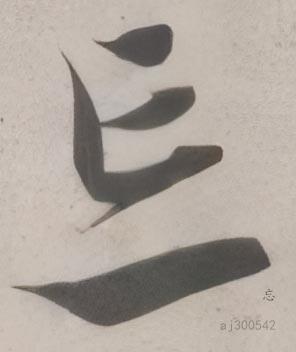 忘
aj300542